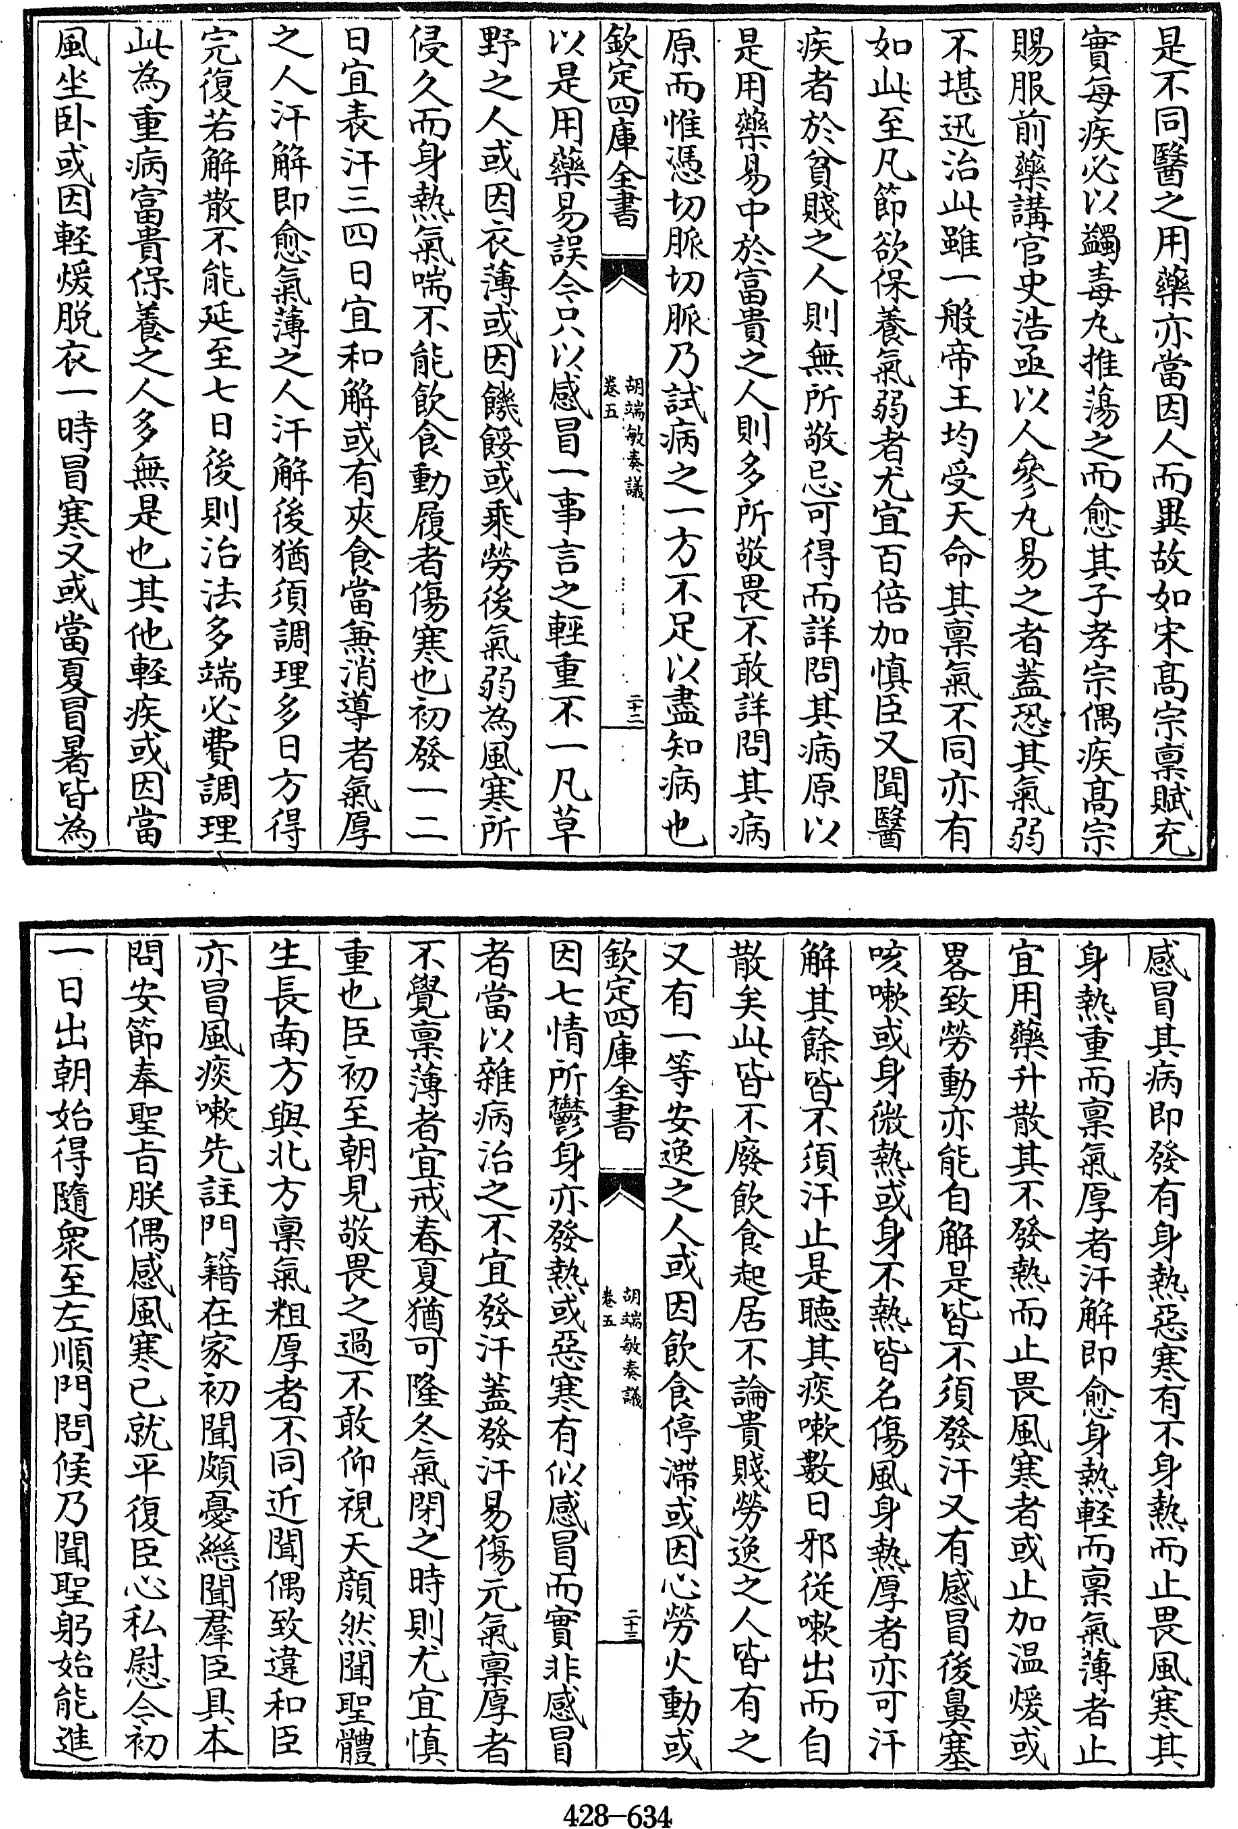 是不同醫之用藥亦當因人而異故如宋髙宗禀賦充
實每疾必以蠲毒丸推蕩之而愈其子孝宗偶疾髙宗
賜服前藥講官史浩亟以人參丸易之者蓋恐其氣弱
不堪迅治此雖一般帝王均受天命其禀氣不同亦有
如此至凡節欲保養氣弱者尤宜百倍加慎臣又聞醫
疾者於貧賤之人則無所敬忌可得而詳問其病原以
是用藥易中於富貴之人則多所敬畏不敢詳問其病
原而惟憑切脈切脈乃試病之一方不足以盡知病也
欽定四庫全書
胡端敏奏議
卷五
二十二
以是用藥易誤今只以感冒一事言之輕重不一凡草
野之人或因衣薄或因饑餒或乘勞後氣弱為風寒所
侵久而身熱氣喘不能飲食動履者傷寒也初發一二
日宜表汗三四日宜和解或有夾食當兼消導者氣厚
之人汗解即愈氣薄之人汗解後猶須調理多日方得
完復若解散不能延至七日後則治法多端必費調理
此為重病富貴保養之人多無是也其他輕疾或因當
風坐卧或因輕煖脱衣一時冒寒又或當夏冒暑皆為
感冒其病即發有身熱惡寒有不身熱而止畏風寒其
身熱重而禀氣厚者汗解即愈身熱輕而禀氣薄者止
宜用藥升散其不發熱而止畏風寒者或止加温煖或
畧致勞動亦能自解是皆不須發汗又有感冒後鼻塞
咳嗽或身微熱或身不熱皆名傷風身熱厚者亦可汗
解其餘皆不須汗止是聽其痰嗽數日邪從嗽出而自
散矣此皆不廢飲食起居不論貴賤勞逸之人皆有之
又有一等安逸之人或因飲食停滯或因心勞火動或
欽定四庫全書
胡端敏奏議
卷五
二十三
因七情所鬱身亦發熱或惡寒有似感冒而實非感冒
者當以雜病治之不宜發汗蓋發汗易傷元氣禀厚者
不覺禀薄者宜戒春夏猶可隆冬氣閉之時則尤宜慎
重也臣初至朝見敬畏之過不敢仰視天顔然聞聖體
生長南方與北方禀氣粗厚者不同近聞偶致違和臣
亦冒風痰嗽先註門籍在家初聞頗憂繼聞羣臣具本
問安節奉聖旨朕偶感風寒已就平復臣心私慰今初
一日出朝始得隨衆至左順門問候乃聞聖躬始能進
428-634